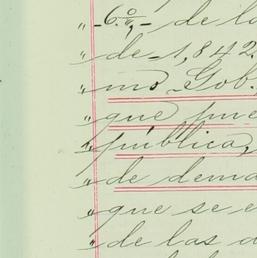 " 6.º - de lo
" de 1,842.
" mo Gob.
" que pue
" pública,
" de dema
" que se e
" de las d